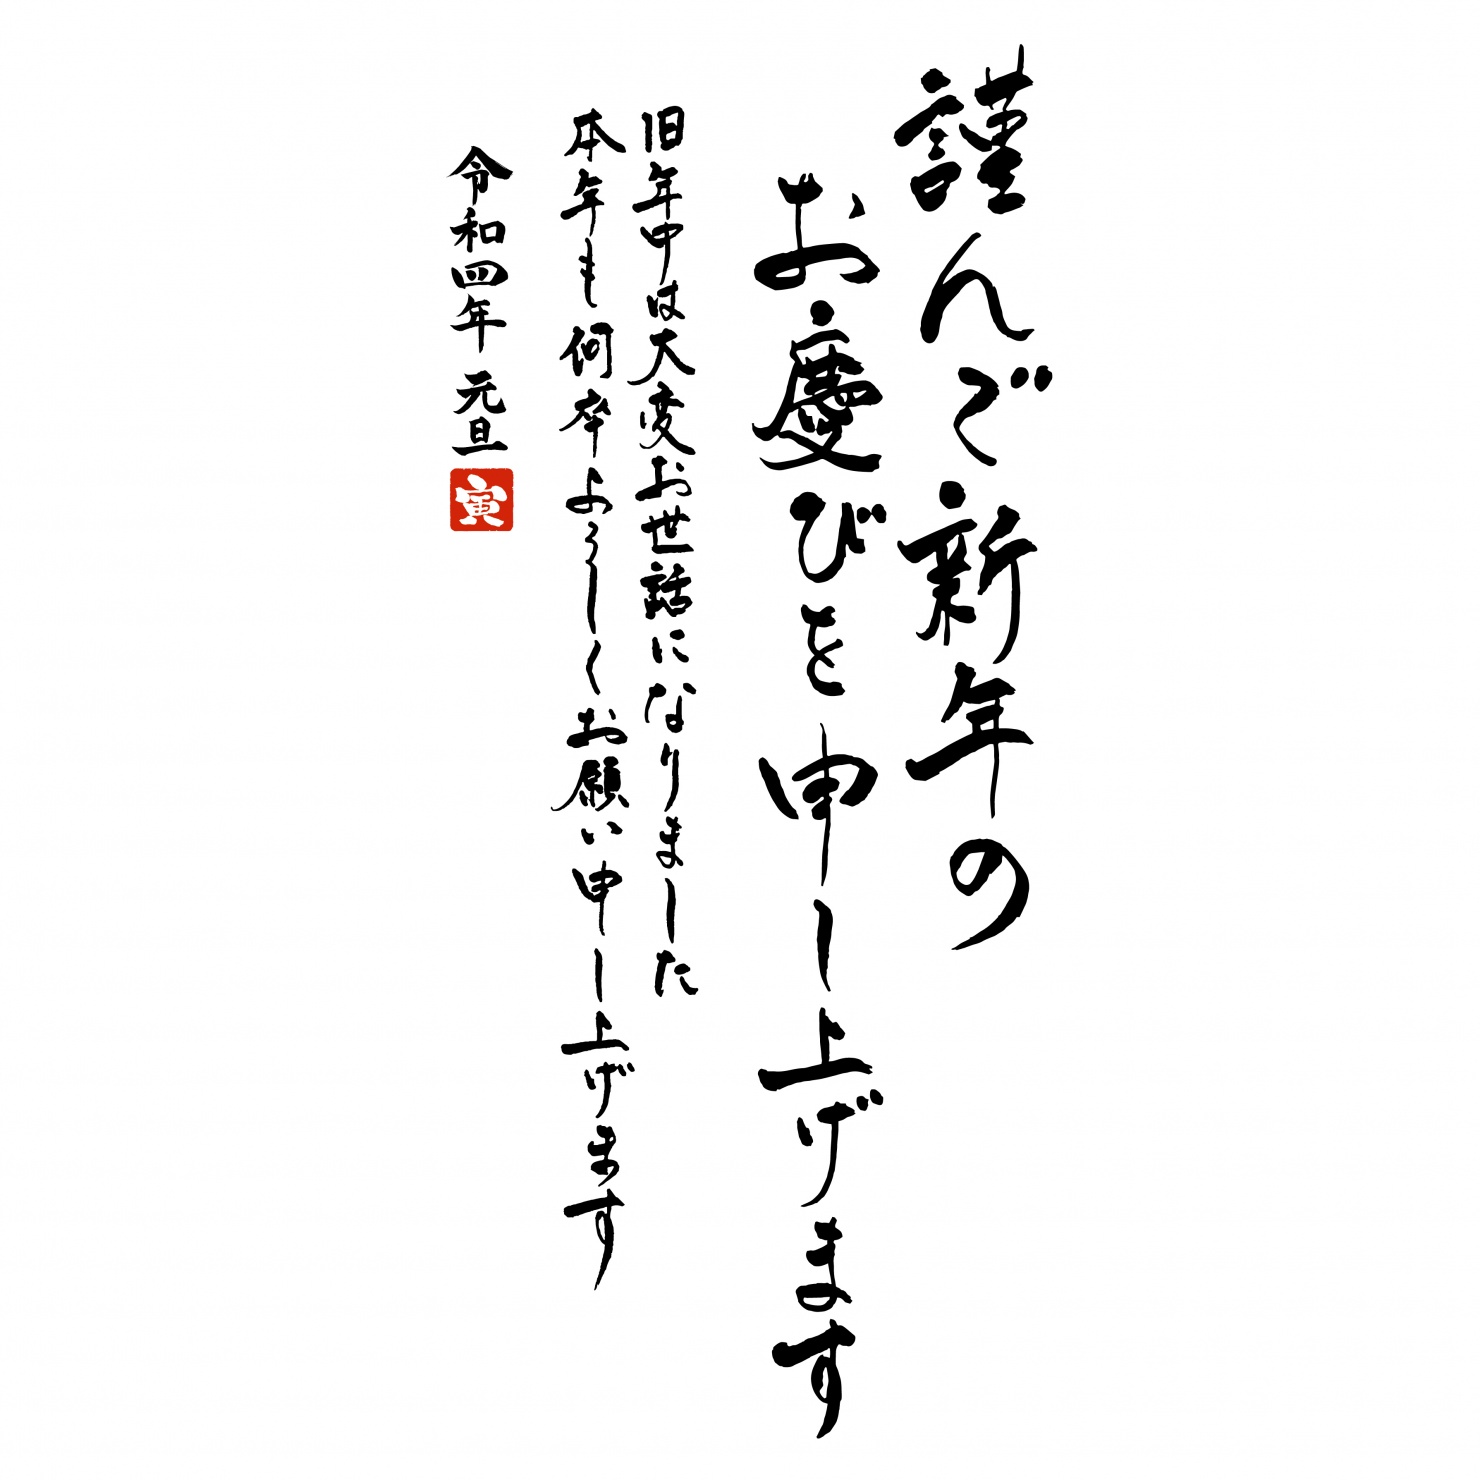 謹んで新年の
お慶びを申し上げます
旧年中は大変お世話になりました
本年も何卒よろしくお願い申し上げます
令和四年 元旦
寅